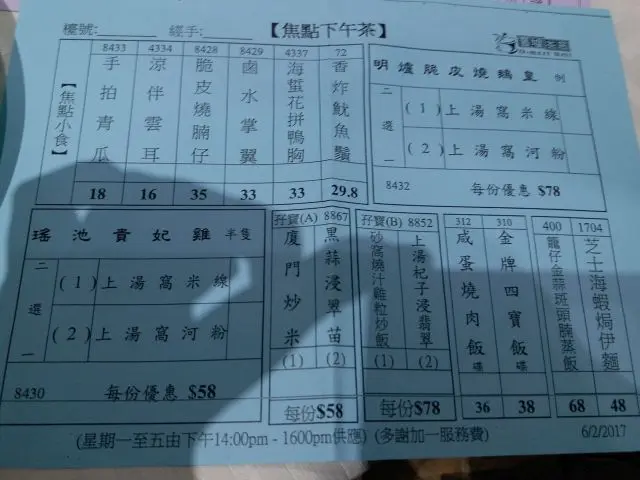 檯號:______ 經手:______
【焦點下午茶】
【焦點小食】
8433
手拍青瓜
18
4334
涼伴雲耳
16
8428
脆皮燒腩仔
35
8429
鹵水掌翼
33
4337
海蜇花拼鴨胸
33
72
香炸魷魚鬚
29.8
明爐脆皮燒鵝皇 例
二選一
(1) 上湯窩米線
(2) 上湯窩河粉
8432 每份優惠 $78
瑤池貴妃雞 半隻
二選一
(1) 上湯窩米線
(2) 上湯窩河粉
8430 每份優惠 $58
孖寶(A) 8867
廈門炒米(1)
黑蒜浸翠苗(2)
每份$58
孖寶(B) 8852
砂窩燒汁雞粒炒飯(1)
上湯杞子浸翡翠(2)
每份$78
312
咸蛋燒肉飯 碟
36
310
金牌四寶飯 碟
38
400
龍仔金蒜斑頭腩蒸飯
68
1704
芝士海蝦焗伊麵
48
(星期一至五由下午14:00pm - 1600pm供應) (多謝加一服務費)
6/2/2017